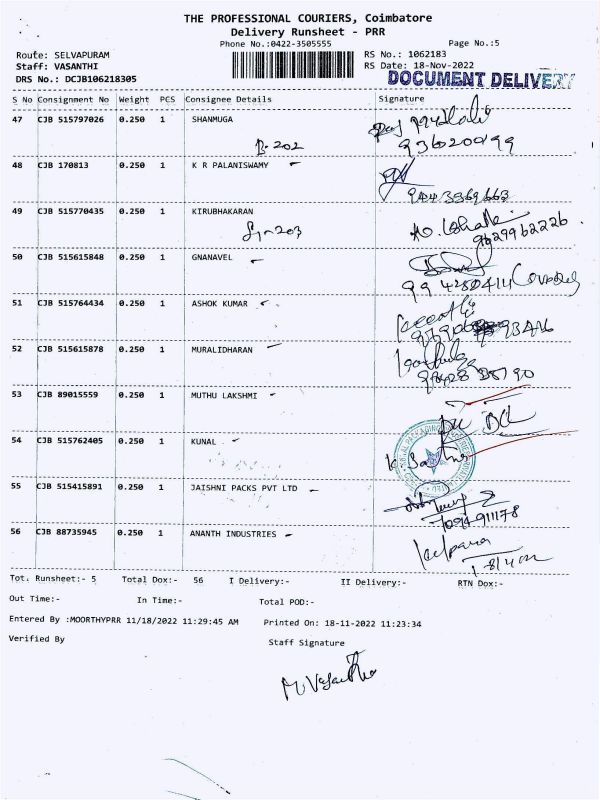 THE PROFESSIONAL COURIERS, Coimbatore
Delivery Runsheet - PRR
Phone No.:0422-3505555
Page No.:5
Route: SELVAPURAM
RS No.: 1062183
Staff: VASANTHI
RS Date: 18-Nov-2022
DRS No.: DCJB106218305
DOCUMENT DELIVERY
S No Consignment No Weight PCS Consignee Details Signature
47 CJB 515797026 0.250 1 SHANMUGA
B-202
48 CJB 170813 0.250 1 K R PALANISWAMY
49 CJB 515770435 0.250 1 KIRUBHAKARAN
9629962226
50 CJB 515615848 0.250 1 GNANAVEL
51 CJB 515764434 0.250 1 ASHOK KUMAR
52 CJB 515615878 0.250 1 MURALIDHARAN
53 CJB 89015559 0.250 1 MUTHU LAKSHMI
54 CJB 515762405 0.250 1 KUNAL
55 CJB 515415891 0.250 1 JAISHNI PACKS PVT LTD
56 CJB 88735945 0.250 1 ANANTH INDUSTRIES
Tot. Runsheet:- 5 Total Dox:- 56 I Delivery:- II Delivery:- RTN Dox:-
Out Time:- In Time:- Total POD:-
Entered By :MOORTHYPRR 11/18/2022 11:29:45 AM Printed On: 18-11-2022 11:23:34
Verified By Staff Signature